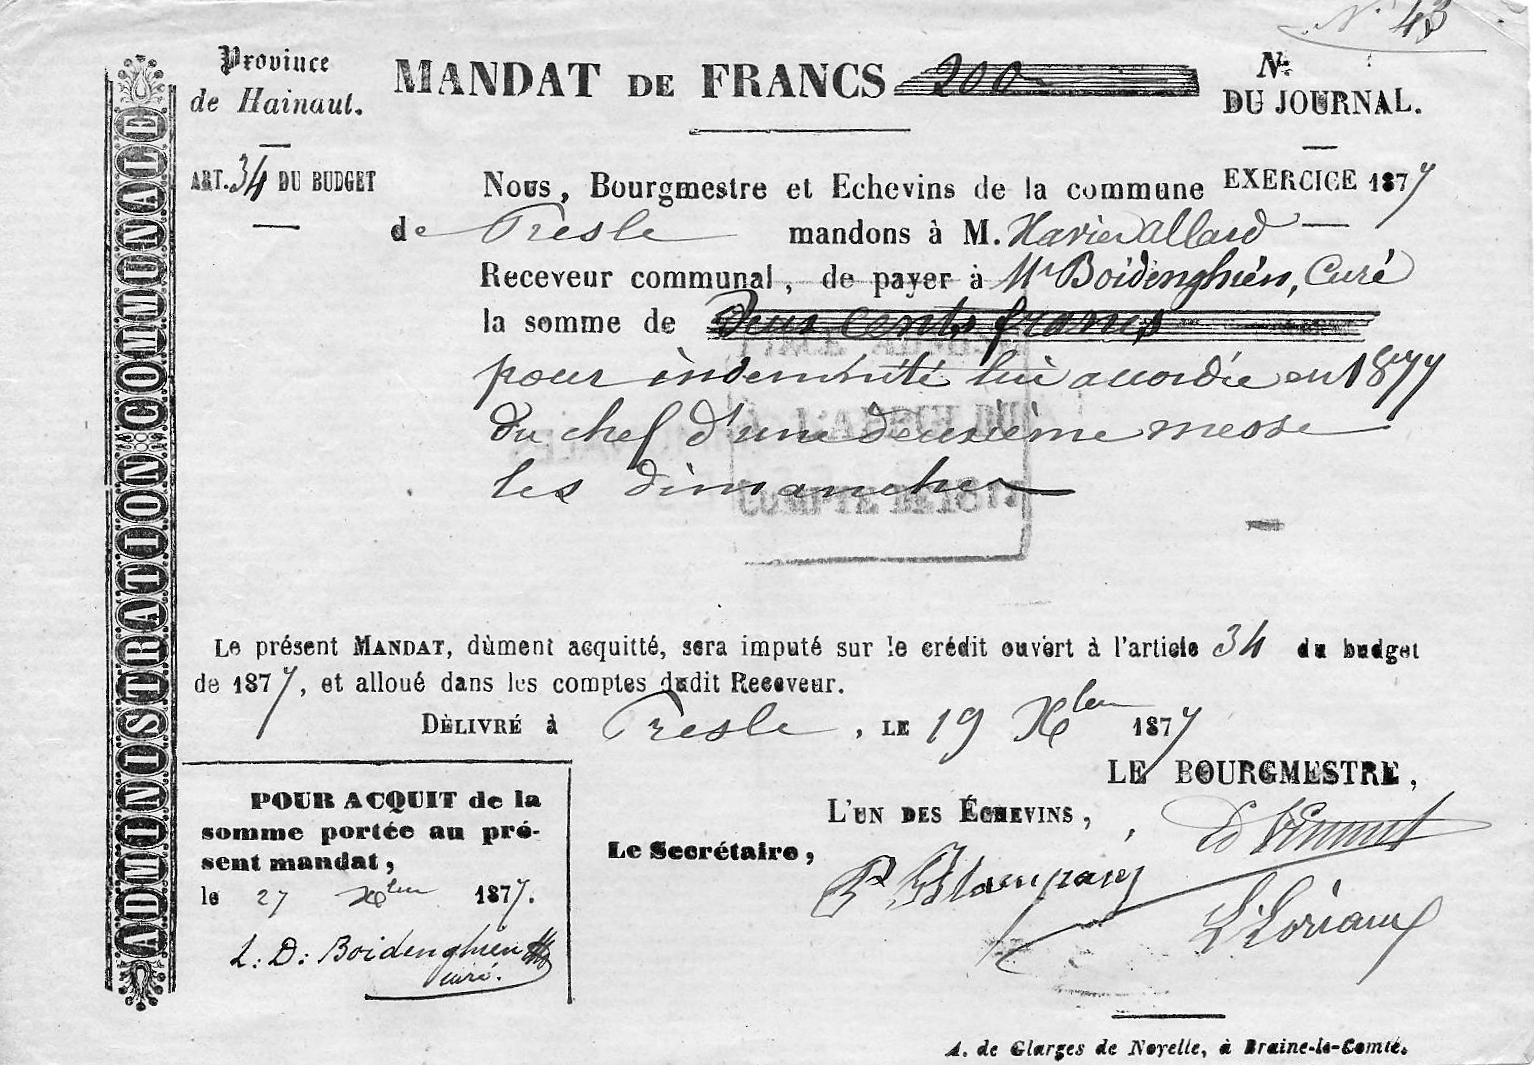 N° 43
Province
de Hainaut.
MANDAT DE FRANCS 200
N°
DU JOURNAL.
ADMINISTRATION COMMUNALE
ART. 34 DU BUDGET
EXERCICE 1877
Nous, Bourgmestre et Echevins de la commune
de Presle mandons à M. Xavier Allard
Receveur communal, de payer à Mr Boidenghien, Curé
la somme de Deux cents francs
pour indemnité lui accordée en 1877
du chef d'une deuxième messe
les dimanches
Le présent MANDAT, dùment acquitté, sera imputé sur le crédit ouvert à l'article 34 du budget
de 1877, et alloué dans les comptes dudit Receveur.
DÈLIVRÉ à Presle, LE 19 Xbre 1877
LE BOURGMESTRE,
L'UN DES ÉCHEVINS,
Le Secrétaire,
POUR ACQUIT de la
somme portée au pré-
sent mandat,
le 27 Xbre 1877.
L: D: Boidenghien
curé.
L. Loriaux
A. de Glarges de Noyelle, à Braine-le-Comté.